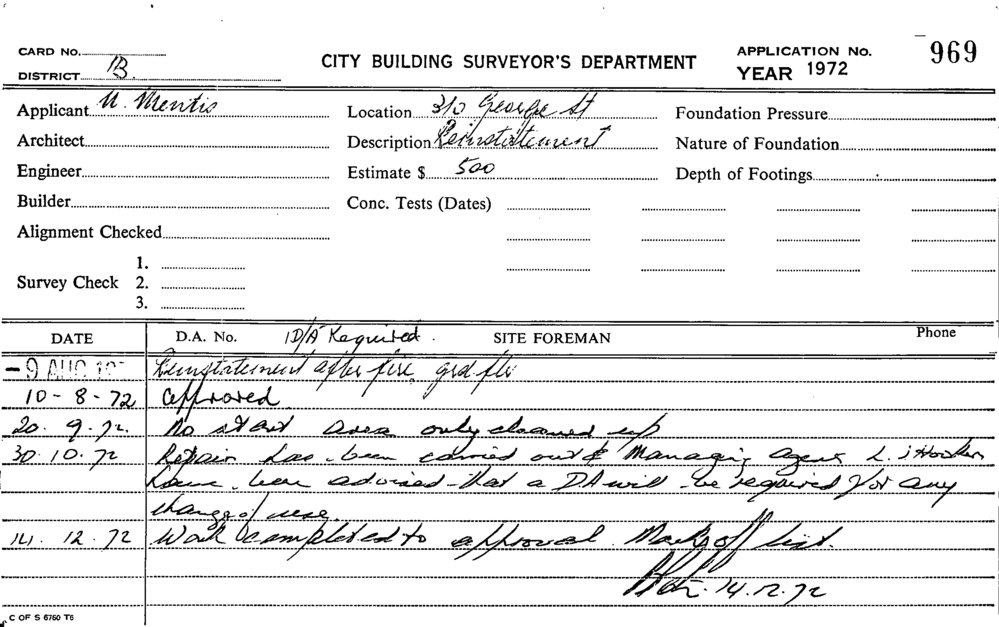 CARD No.
DISTRICT B
CITY BUILDING SURVEYOR'S DEPARTMENT
APPLICATION No. 969
YEAR 1972
Applicant N. Mentis
Location 310 George St
Foundation Pressure
Architect
Description Reinstatement
Nature of Foundation
Engineer
Estimate $ 500
Depth of Footings
Builder
Conc. Tests (Dates)
Alignment Checked
Survey Check 1.
2.
3.
DATE D.A. No. D/A Required. SITE FOREMAN Phone
-9 AUG 197 Reinstatement after fire, grd flr
10-8-72 approved
20. 9. 72. No start area only cleaned up
30. 10. 72 Repair has been carried out & Managing Agent L. J Hooker
have been advised that a DA will be required for any
change of use.
14. 12. 72 Work completed to approval. Mark off list.
14.12.72
C OF S 6760 T6